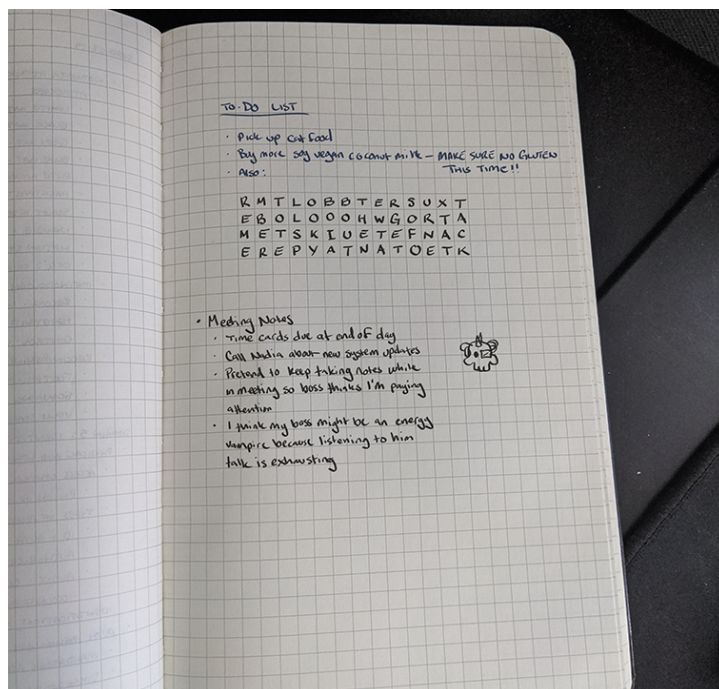 TO-DO LIST
· Pick up cat food
· Buy more soy vegan coconut milk – MAKE SURE NO GLUTEN
THIS TIME!!
· Also:
R M T L O B B T E R S U X T
E B O L O O O H W G O R T A
M E T S K I U E T E F N A C
E R E P Y A T N A T O E T K
· Meeting Notes
· Time cards due at end of day
· Call Nadia about new system updates
· Pretend to keep taking notes while
in meeting so boss thinks I'm paying
attention
· I think my boss might be an energy
vampire because listening to him
talk is exhausting